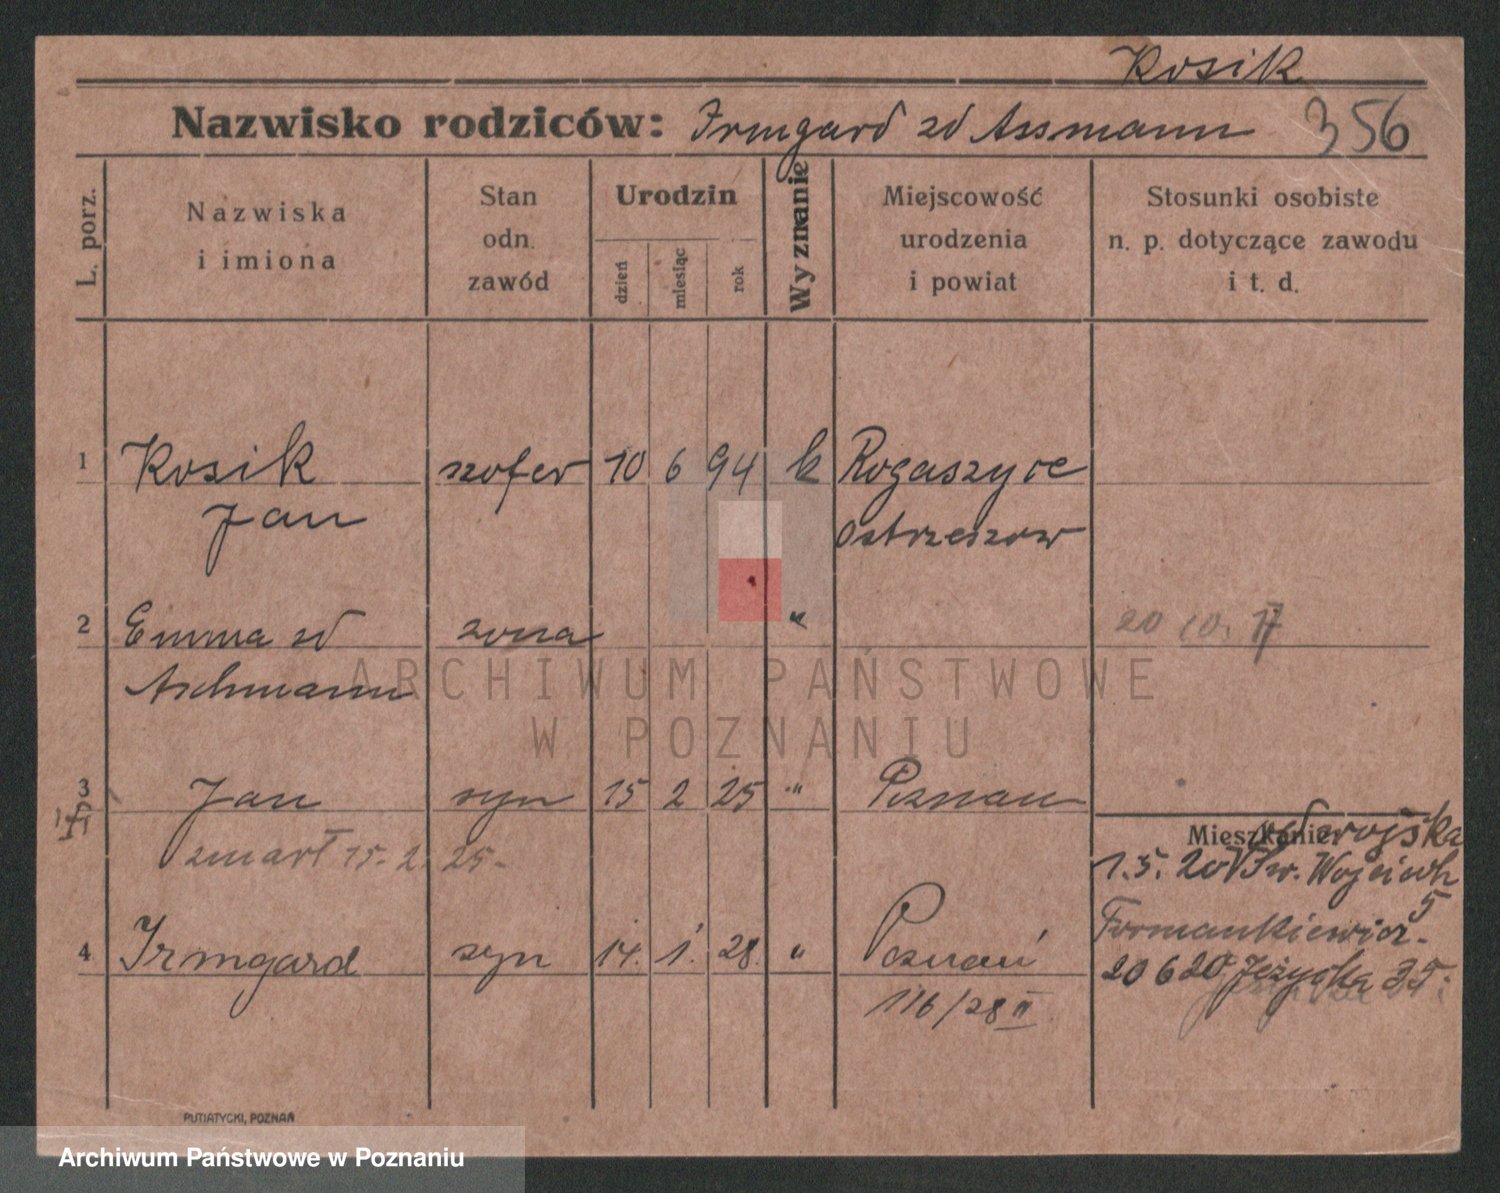 Kosik
Nazwisko rodziców: Irmgard zd Assmann 356
L. porz.
Nazwiska i imiona
Stan odn. zawód
Urodzin
dzień
miesiąc
rok
Wyznanie
Miejscowość urodzenia i powiat
Stosunki osobiste n. p. dotyczące zawodu i t. d.
1 Kosik szofer 10 6 94 k Rogaszyce
Jan Ostrzeszow
2 Emma zd zona " 20 10. 17
Aschmann
ARCHIWUM PAŃSTWOWE
W POZNANIU
3 Jan syn 15 2 25 " Poznan
zmarł 15. 2. 25.
Mieszkanie:
1.5. 20 Św. Wojciech
5
4 Irmgard syn 14. 1. 28. " Poznań
20 6 20 Jeżycka 35.
116/28 II
PUTIATYCKI, POZNAŃ
Archiwum Państwowe w Poznaniu